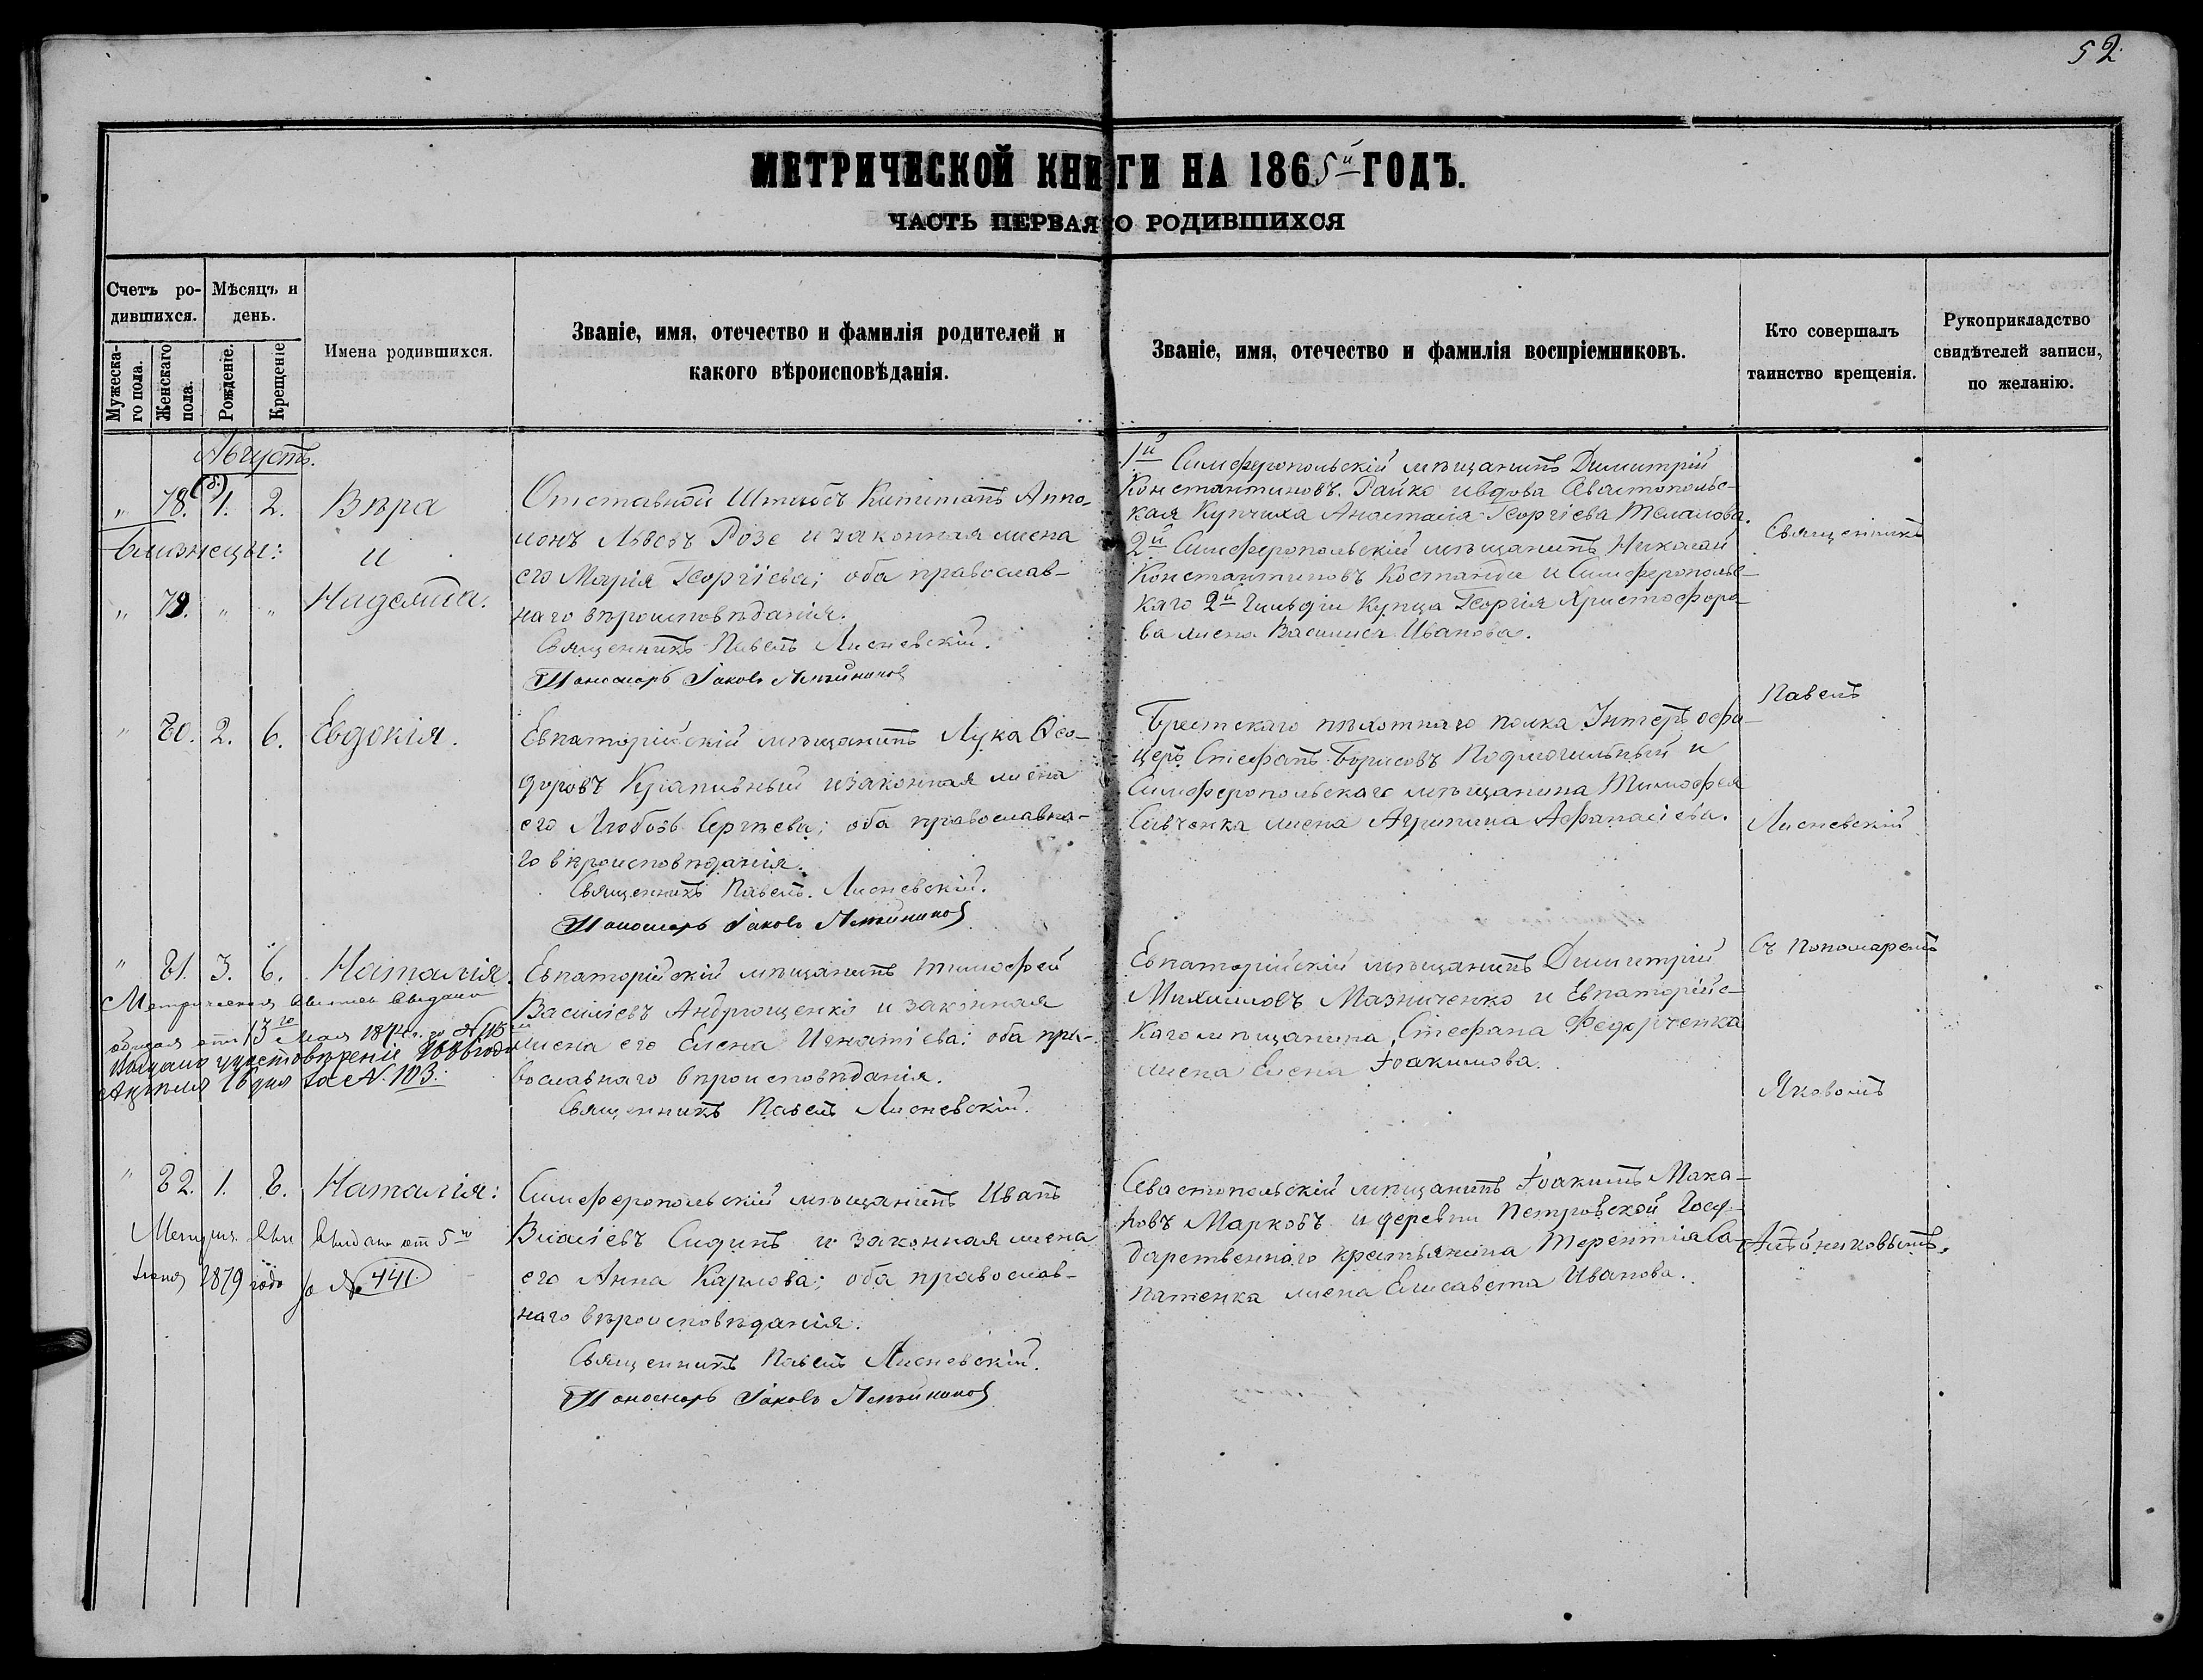 52
МЕТРИЧЕСКОЙ КНИГИ НА 1865й ГОДЪ.
ЧАСТЬ ПЕРВАЯ О РОДИВШИХСЯ
Счетъ ро-
дившихся.
Мужеска-
го пола.
Женскаго
пола.
Мѣсяцъ и
день.
Рожденіе.
Крещеніе
Имена родившихся.
Званіе, имя, отечество и фамилія родителей и
какого вѣроисповѣданія.
Званіе, имя, отечество и фамилія воспріемниковъ.
Кто совершалъ
таинство крещенія.
Рукоприкладство
свидѣтелей записи,
по желанію.
Августъ.
" 78. 1. 2. Вѣра
близнецы: и
" 79. " " Надежда.
Отставной Штабсъ Капитанъ Аппо-
лонъ Львовъ Розе и законная жена
его Марія Георгіева; оба православ-
наго вѣроисповѣданія.
Священникъ Павелъ Лисневскій.
Пономарь Іаковъ
1й Симферопольскій мѣщанинъ Димитрій
Константиновъ Райко и вдова Севастопольс-
кая Купчиха Анастасія Георгіева
2й Симферопольскій мѣщанинъ Николай
Константиновъ Костанди и Симферопольс-
каго 2й Гильдіи Купца Георгія Христофоро-
ва жена Василиса Иванова.
" 80. 2. 6. Евдокія.
Евпаторійскій мѣщанинъ Лука Ѳео-
доровъ Крапивный и законная жена
его Любовь Сергѣева; оба православна-
го вѣроисповѣданія.
Священникъ Павелъ Лисневскій.
Пономарь Іаковъ
Брестскаго пѣхотнаго полка Унтеръ офи-
церъ Стефанъ Борисовъ Подмогильный и
Симферопольскаго мѣщанина Тимофея
Савченка жена Агрипина Афанасіева.
" 81. 3. 6. Наталія.
выдано
13го Мая 1874 г.
удостовѣреніе
Апрѣля 16 дня за №. 103.
Евпаторійскій мѣщанинъ Тимофей
Василіевъ Андрющенко и законная
жена его Елена Игнатіева; оба пра-
вославнаго вѣроисповѣданія.
Священникъ Павелъ Лисневскій.
Евпаторійскій мѣщанинъ Димитрій
Михаиловъ Мазниченко и Евпаторійс-
каго мѣщанина Стефана Федорченка
жена Елена Іоакимова.
" 82. 1. 8. Наталія:
выдано от 5го
1879 года за № 441.
Симферопольскій мѣщанинъ Иванъ
Власіевъ Сидинъ и законная жена
его Анна Карлова; оба православ-
наго вѣроисповѣданія.
Священникъ Павелъ Лисневскій.
Пономарь Іаковъ
Севастопольскій мѣщанинъ Іоакимъ Мака-
ровъ Марковъ и деревни Петровской Госу-
дарственнаго крестьянина Терентія Са-
патенка жена Елисавета Иванова.
Священникъ
Павелъ
Лисневскій
съ пономаремъ
Яковомъ